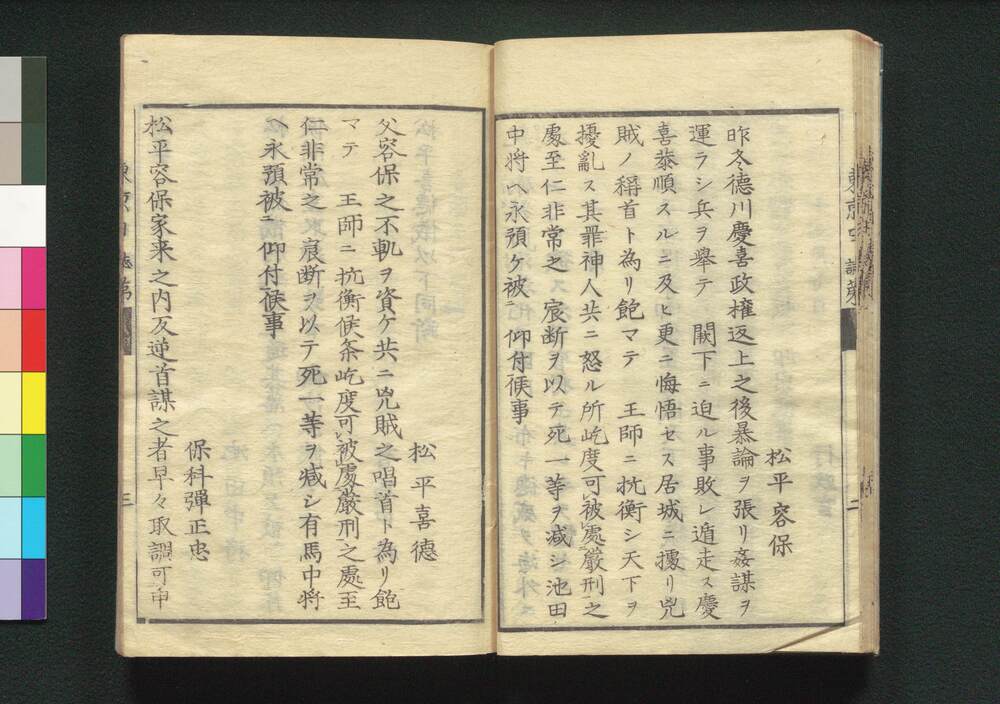 松平容保
昨冬徳川慶喜政権返上之後暴論ヲ張リ姦謀ヲ
運ラシ兵ヲ舉テ 闕下ニ迫ル事敗レ遁走ス慶
喜恭順スルニ及ヒ更ニ悔悟セス居城ニ據リ兇
賊ノ稱首ト為リ飽マテ 王師ニ抗衡シ天下ヲ
擾亂ス其罪神人共ニ怒ル所屹度可被處嚴刑之
處至仁非常之 宸断ヲ以テ死一等ヲ减シ池田
中将ヘ永預ケ被ニ仰付候事
二
松平喜德
父容保之不軌ヲ資ケ共ニ兇賊之唱首ト為リ飽
マテ 王師ニ抗衡候条屹度可被處嚴刑之處至
仁非常之 宸断ヲ以テ死一等ヲ减シ有馬中将
ヘ永預被ニ仰付候事
保科彈正忠
松平容保家来之内反逆首謀之者早々取調可申
東京日誌第
三